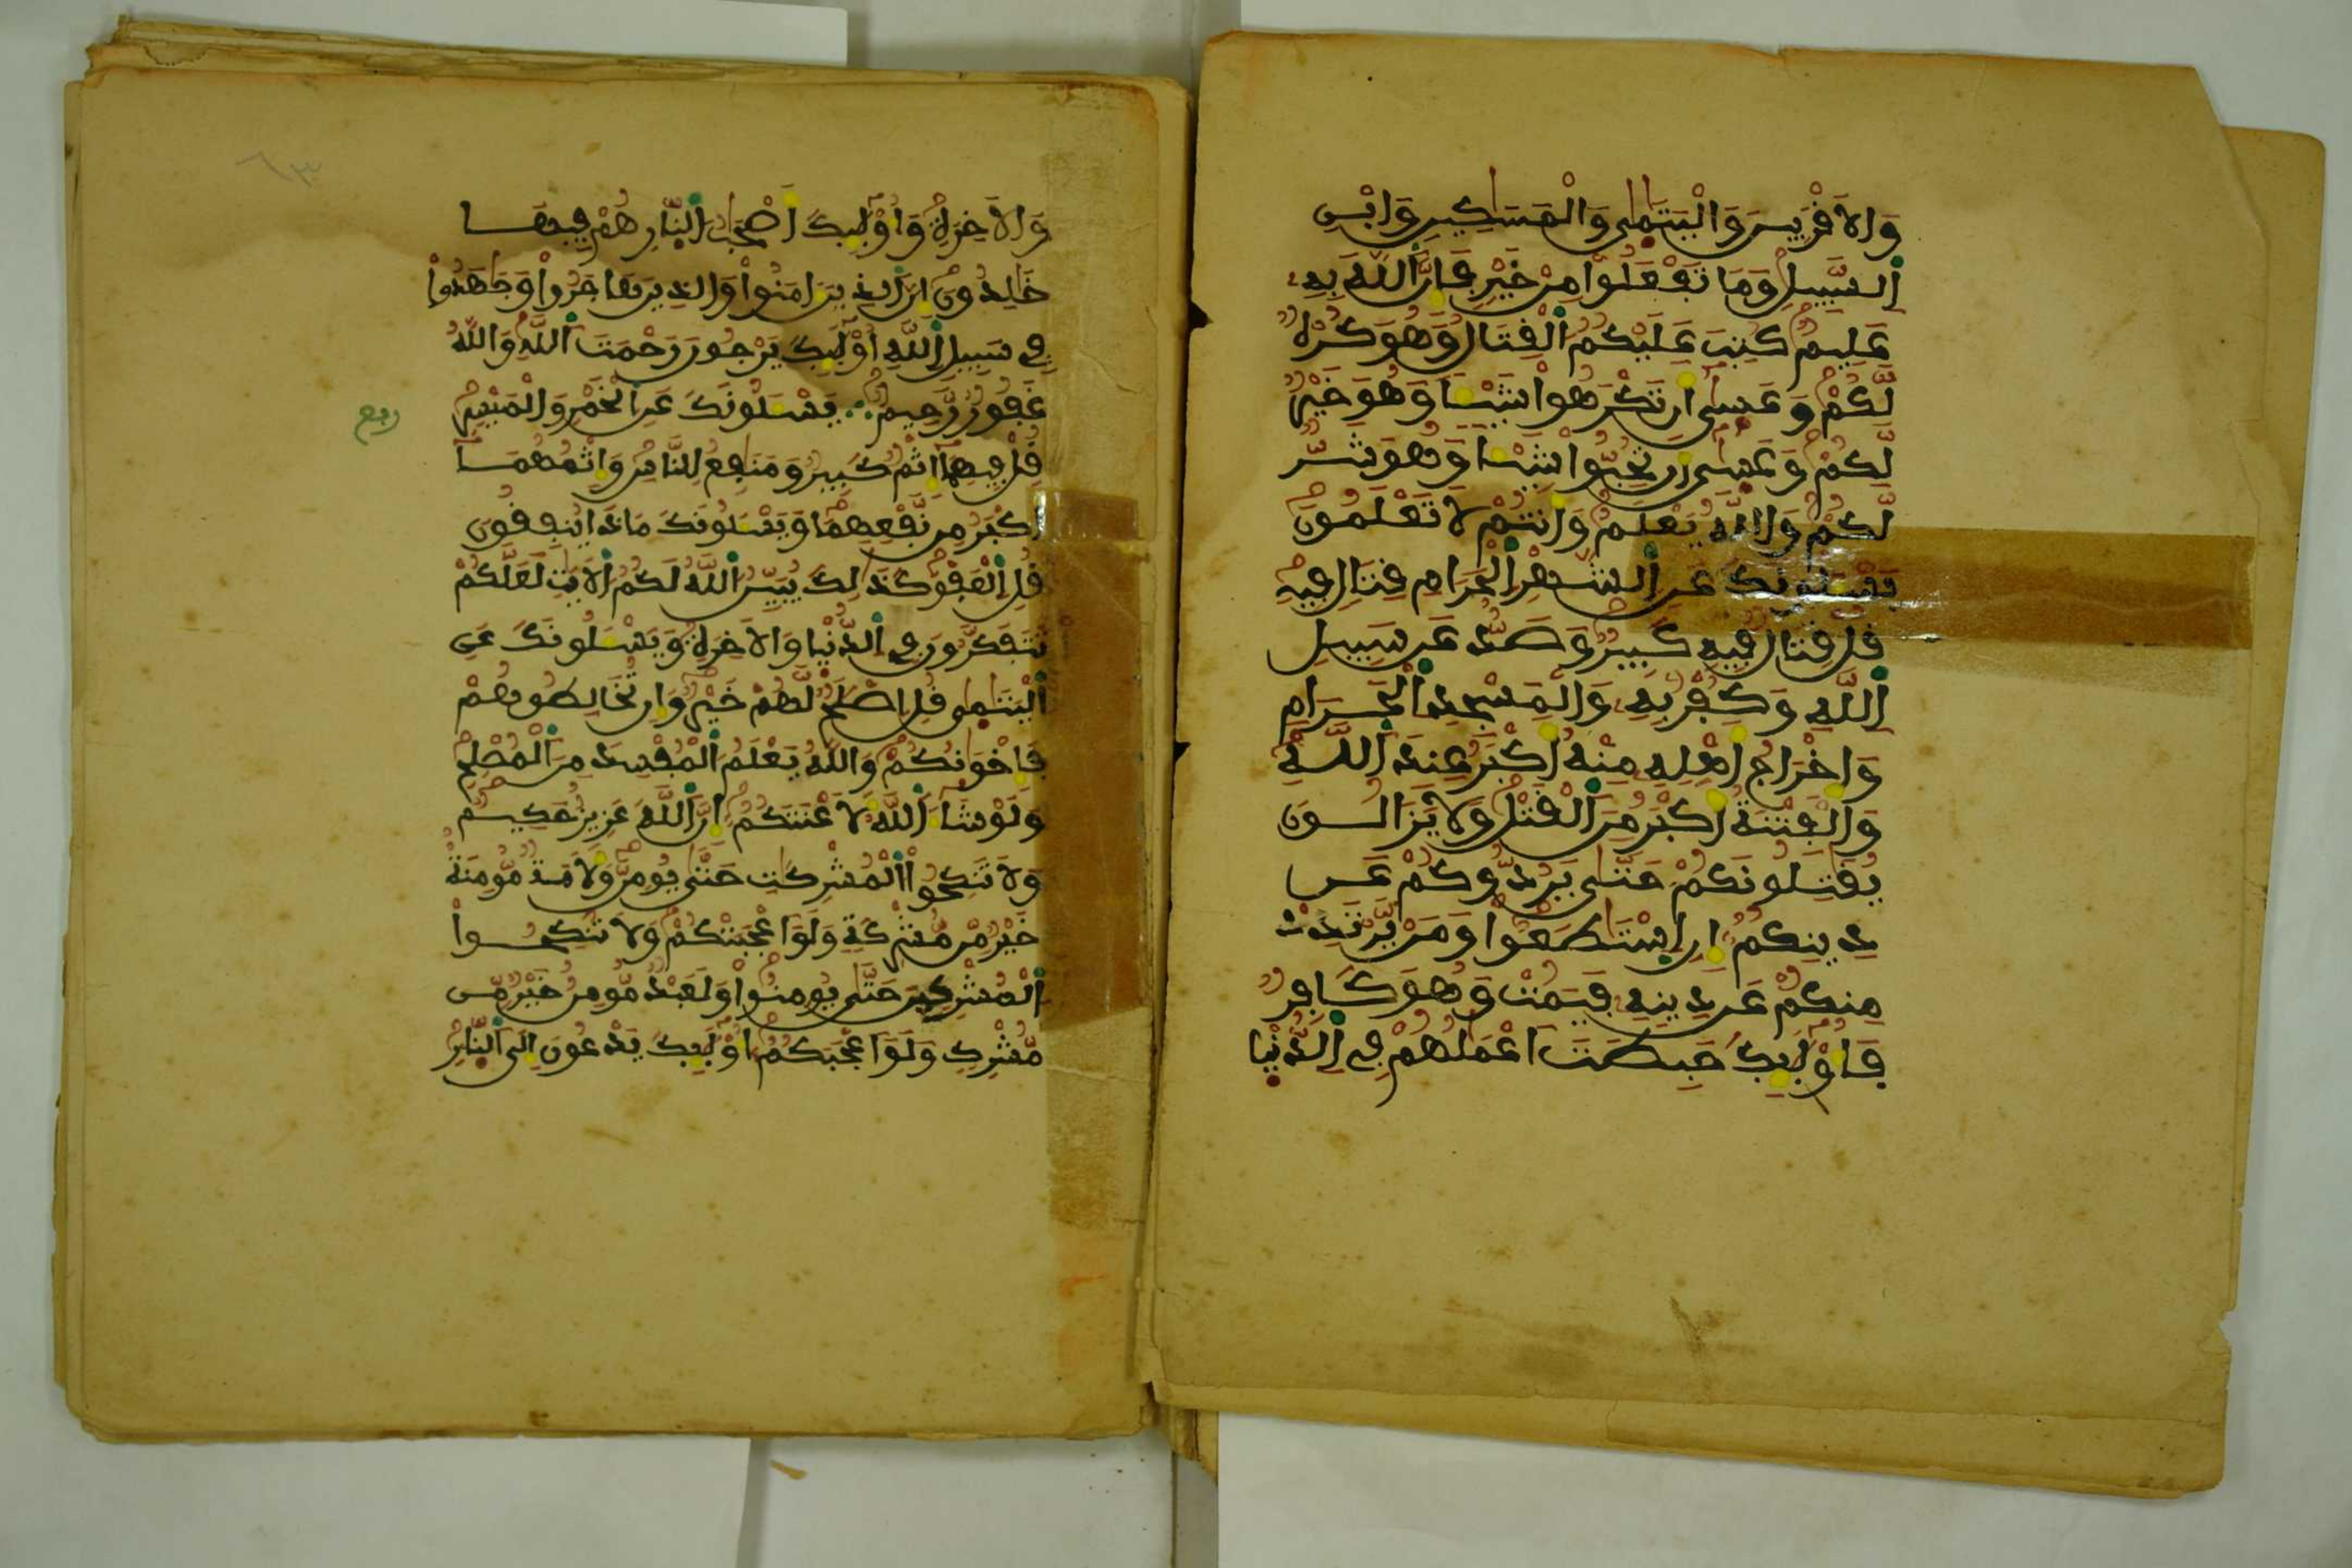 وَالَاقْرَبِينَ وَالْيَتَٰمَىٰ وَالْمَسَٰكِينِ وَابْنِ
اِ۬لسَّبِيلِ وَمَا تَفْعَلُواْ مِنْ خَيْرٍ فَإِنَّ اَ۬للَّهَ بِهِۦ
عَلِيمٌ كُتِبَ عَلَيْكُمُ اُ۬لْقِتَالُ وَهُوَ كُرْهٌ
لَّكُمْ وَعَسَىٰ أَن تَكْرَهُواْ شَيْـٔاً وَهُوَ خَيْرٌ
لَّكُمْ وَعَسَىٰ أَن تُحِبُّواْ شَيْـٔاً وَهُوَ شَرٌّ
لَّكُمْ وَاللَّهُ يَعْلَمُ وَأَنتُمْ لَا تَعْلَمُونَ
يَسْـَٔلُونَكَ عَنِ اِ۬لشَّهْرِ اِ۬لْحَرَامِ قِتَالٍ فِيهِ
قُلْ قِتَالٌ فِيهِ كَبِيرٌ وَصَدٌّ عَن سَبِيلِ
اِ۬للَّهِ وَكُفْرٌ بِهِۦ وَالْمَسْجِدِ اِ۬لْحَرَامِ
وَإِخْرَاجُ أَهْلِهِۦ مِنْهُ أَكْبَرُ عِندَ اَ۬للَّهِ
وَالْفِتْنَةُ أَكْبَرُ مِنَ اَ۬لْقَتْلِ وَلَا يَزَالُونَ
يُقَٰتِلُونَكُمْ حَتَّىٰ يَرُدُّوكُمْ عَن
دِينِكُمُۥ إِنِ اِ۪سْتَطَٰعُواْ وَمَنْ يَّرْتَدِدْ
مِنكُمْ عَن دِينِهِۦ فَيَمُتْ وَهُوَ كَافِرٌ
فَأُوْلَٰٓئِكَ حَبِطَتَ اَعْمَٰلُهُمْ فِي اِ۬لدُّنْيا
وَالَاخِرَةِ وَأُوْلَٰٓئِكَ أَصْحَٰبُ اُ۬لنَّارِ هُمْ فِيهَا
خَٰلِدُونَ إِنَّ اَ۬لذِينَ ءَامَنُواْ وَالذِينَ هَاجَرُواْ وَجَٰهَدُواْ
فِي سَبِيلِ اِ۬للَّهِ أُوْلَٰٓئِكَ يَرْجُونَ رَحْمَتَ اَ۬للَّهِ وَاللَّهُ
غَفُورٌ رَّحِيمٌ يَسْـَٔلُونَكَ عَنِ اِ۬لْخَمْرِ وَالْمَيْسِرِ
ربع
قُلْ فِيهِمَا إِثْمٌ كَبِيرٌ وَمَنَٰفِعُ لِلنَّاسِ وَإِثْمُهُمَا
أَكْبَرُ مِن نَّفْعِهِمَا وَيَسْـَٔلُونَكَ مَاذَا يُنفِقُونَ
قُلِ اِ۬لْعَفْوَ كَذَٰلِكَ يُبَيِّنُ اُ۬للَّهُ لَكُمُ اُ۬لَايَٰتِ لَعَلَّكُمْ
تَتَفَكَّرُونَ فِي اِ۬لدُّنْيا وَالَاخِرَةِ وَيَسْـَٔلُونَكَ عَنِ
اِ۬لْيَتَٰمَىٰ قُلِ اِصْلَٰحٌ لَّهُمْ خَيْرٌ وَإِن تُخَالِطُوهُمْ
فَإِخْوَٰنُكُمْ وَاللَّهُ يَعْلَمُ اُ۬لْمُفْسِدَ مِنَ اَ۬لْمُصْلِحِ
وَلَوْ شَآءَ اَ۬للَّهُ لَأَعْنَتَكُمُ إِنَّ اَ۬للَّهَ عَزِيزٌ حَكِيمٌ
وَلَا تَنكِحُواْ اُ۬لْمُشْرِكَٰتِ حَتَّىٰ يُومِنَّ وَلَأَمَةٌ مُّومِنَةٌ
خَيْرٌ مِّن مُّشْرِكَةٍ وَلَوَ اَعْجَبَتْكُمْ وَلَا تُنكِحُواْ
اُ۬لْمُشْرِكِينَ حَتَّىٰ يُومِنُواْ وَلَعَبْدٌ مُّومِنٌ خَيْرٌ مِّن
مُّشْرِكٍ وَلَوَ اَعْجَبَكُمُ أُوْلَٰٓئِكَ يَدْعُونَ إِلَى اَ۬لنَّارِ
٦٣